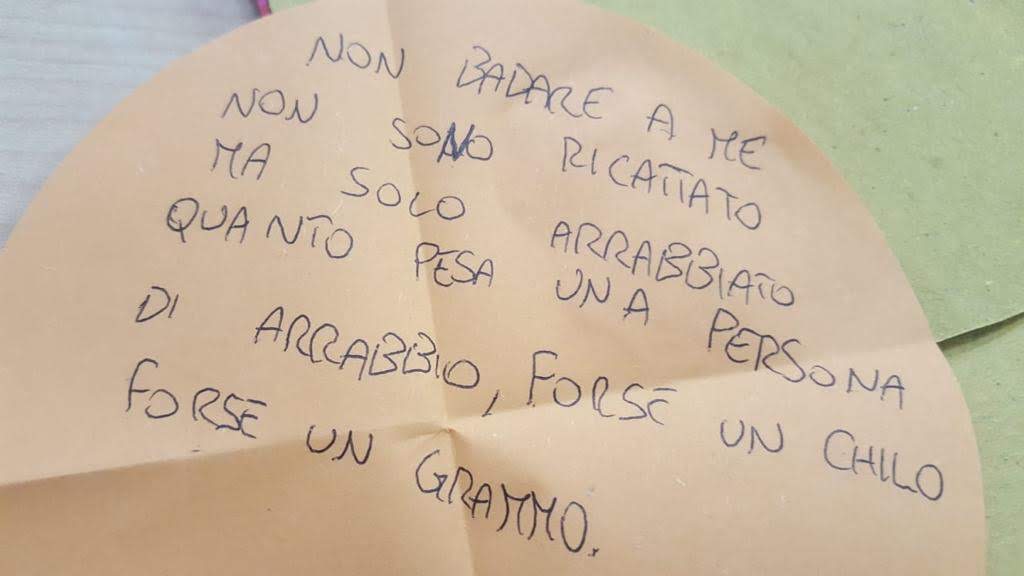 NON BADARE A ME
NON SONO RICATTATO
MA SOLO ARRABBIATO
QUANTO PESA UNA PERSONA
DI ARRABBIO, FORSE UN CHILO
FORSE UN GRAMMO.